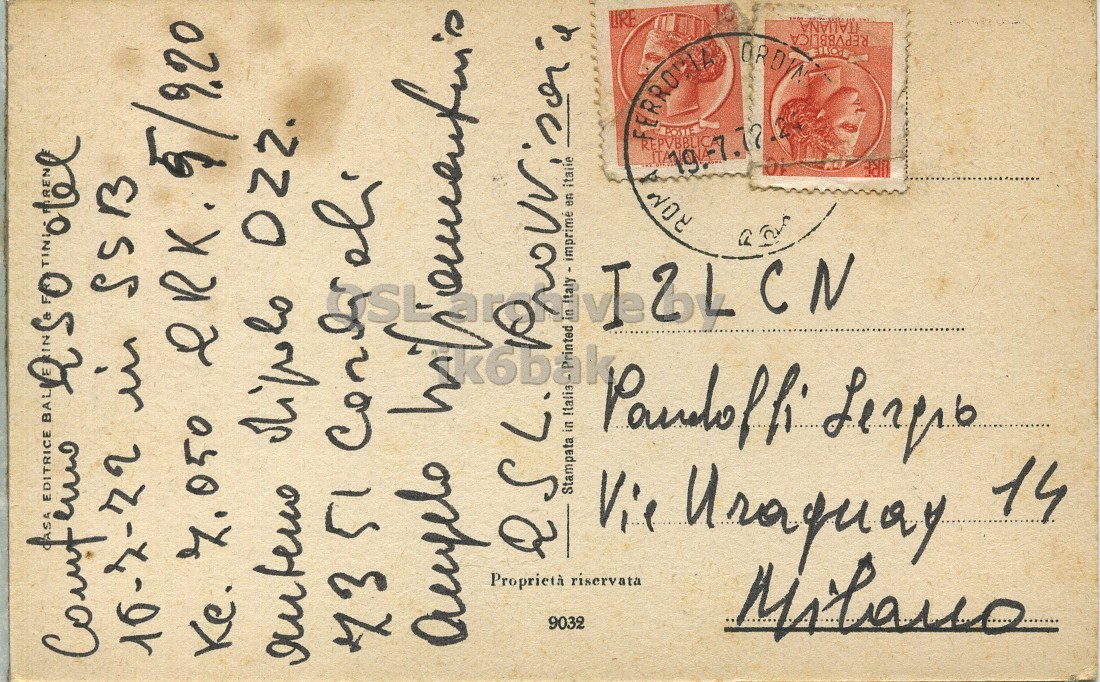 Confermo QSO del
16-7-72 in SSB
Kc. 7.050 QRK. 5/9.20
Antenna dipolo DZZ.
73 51 Cordiali
Angelo
QSL. Provvisoria
CASA EDITRICE BALLERINI & FRATINI - FIRENZE
Stampata in Italia - Printed in Italy - imprimé en Italie
Proprietà riservata
9032
LIRE 15
POSTE
REPVBBLICA
ITALIANA
LIRE 10
POSTE
REPVBBLICA
ITALIANA
ROMA FERROVIA ORDIN
19.-7.72.24
I2LCN
Pandolfi Sergio
Via Uraguay 14
Milano
QSL archive by
ik6bak